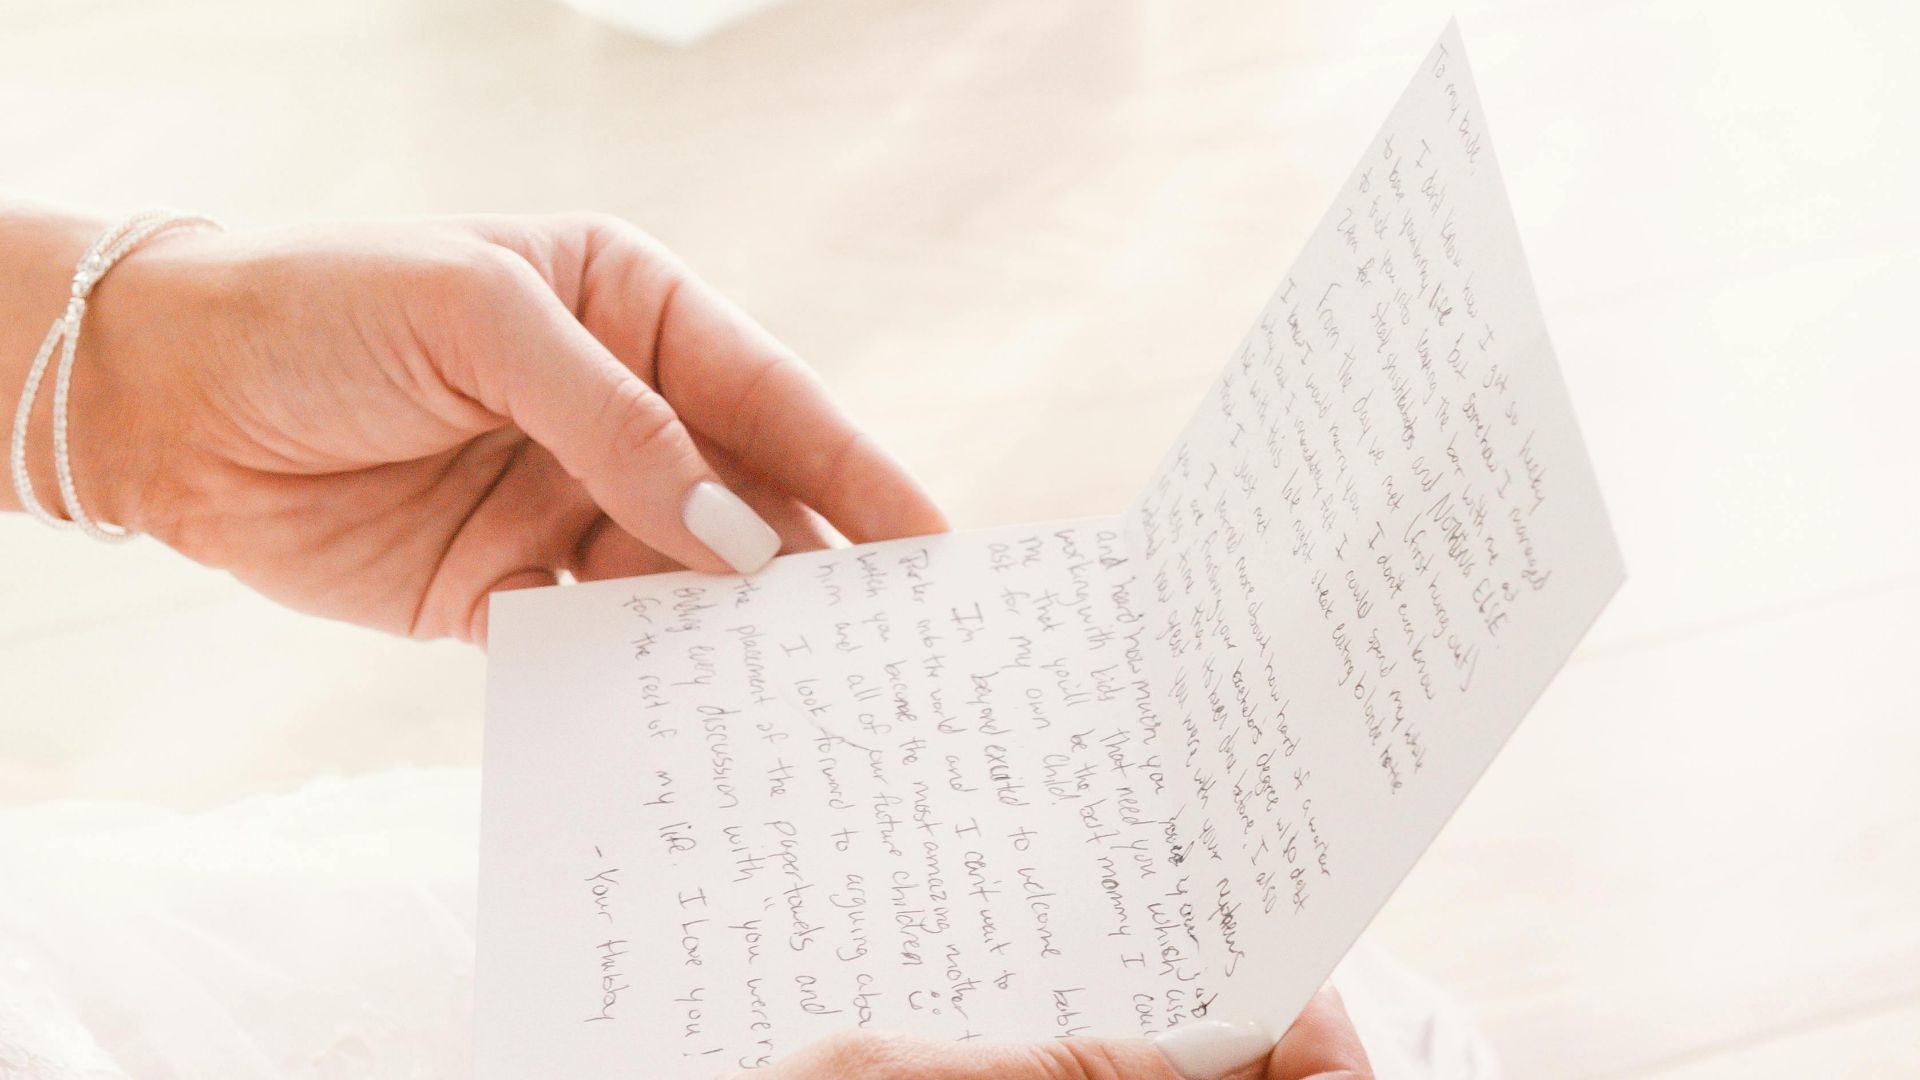 To my bride,
I don't know how I got so lucky
to have you in my life but somehow I managed
to trick you into leaving the bar with me at
2am for steak quesadillas and NOTHING ELSE.
From the day we met (first hung out)
I knew I would marry you. I don't even know
why, but I immediately felt I could spend my whole
life with this late night steak eating blonde
that I just met.
I learned more about how hard of a worker
you are finishing your bachelor's degree w/
in less time than it's been done before. I also
you were with your
and heard how much you
working with kids that need you which
me that you'll be the best mommy I
ask for my own child.
I'm beyond excited to welcome
Parker into the world and I can't wait to
watch you become the most amazing mother
him and all of our future children :)
I look forward to arguing
the placement of the papertowels and
ending every discussion with "you were
for the rest of my life. I Love you!
- Your Hubby